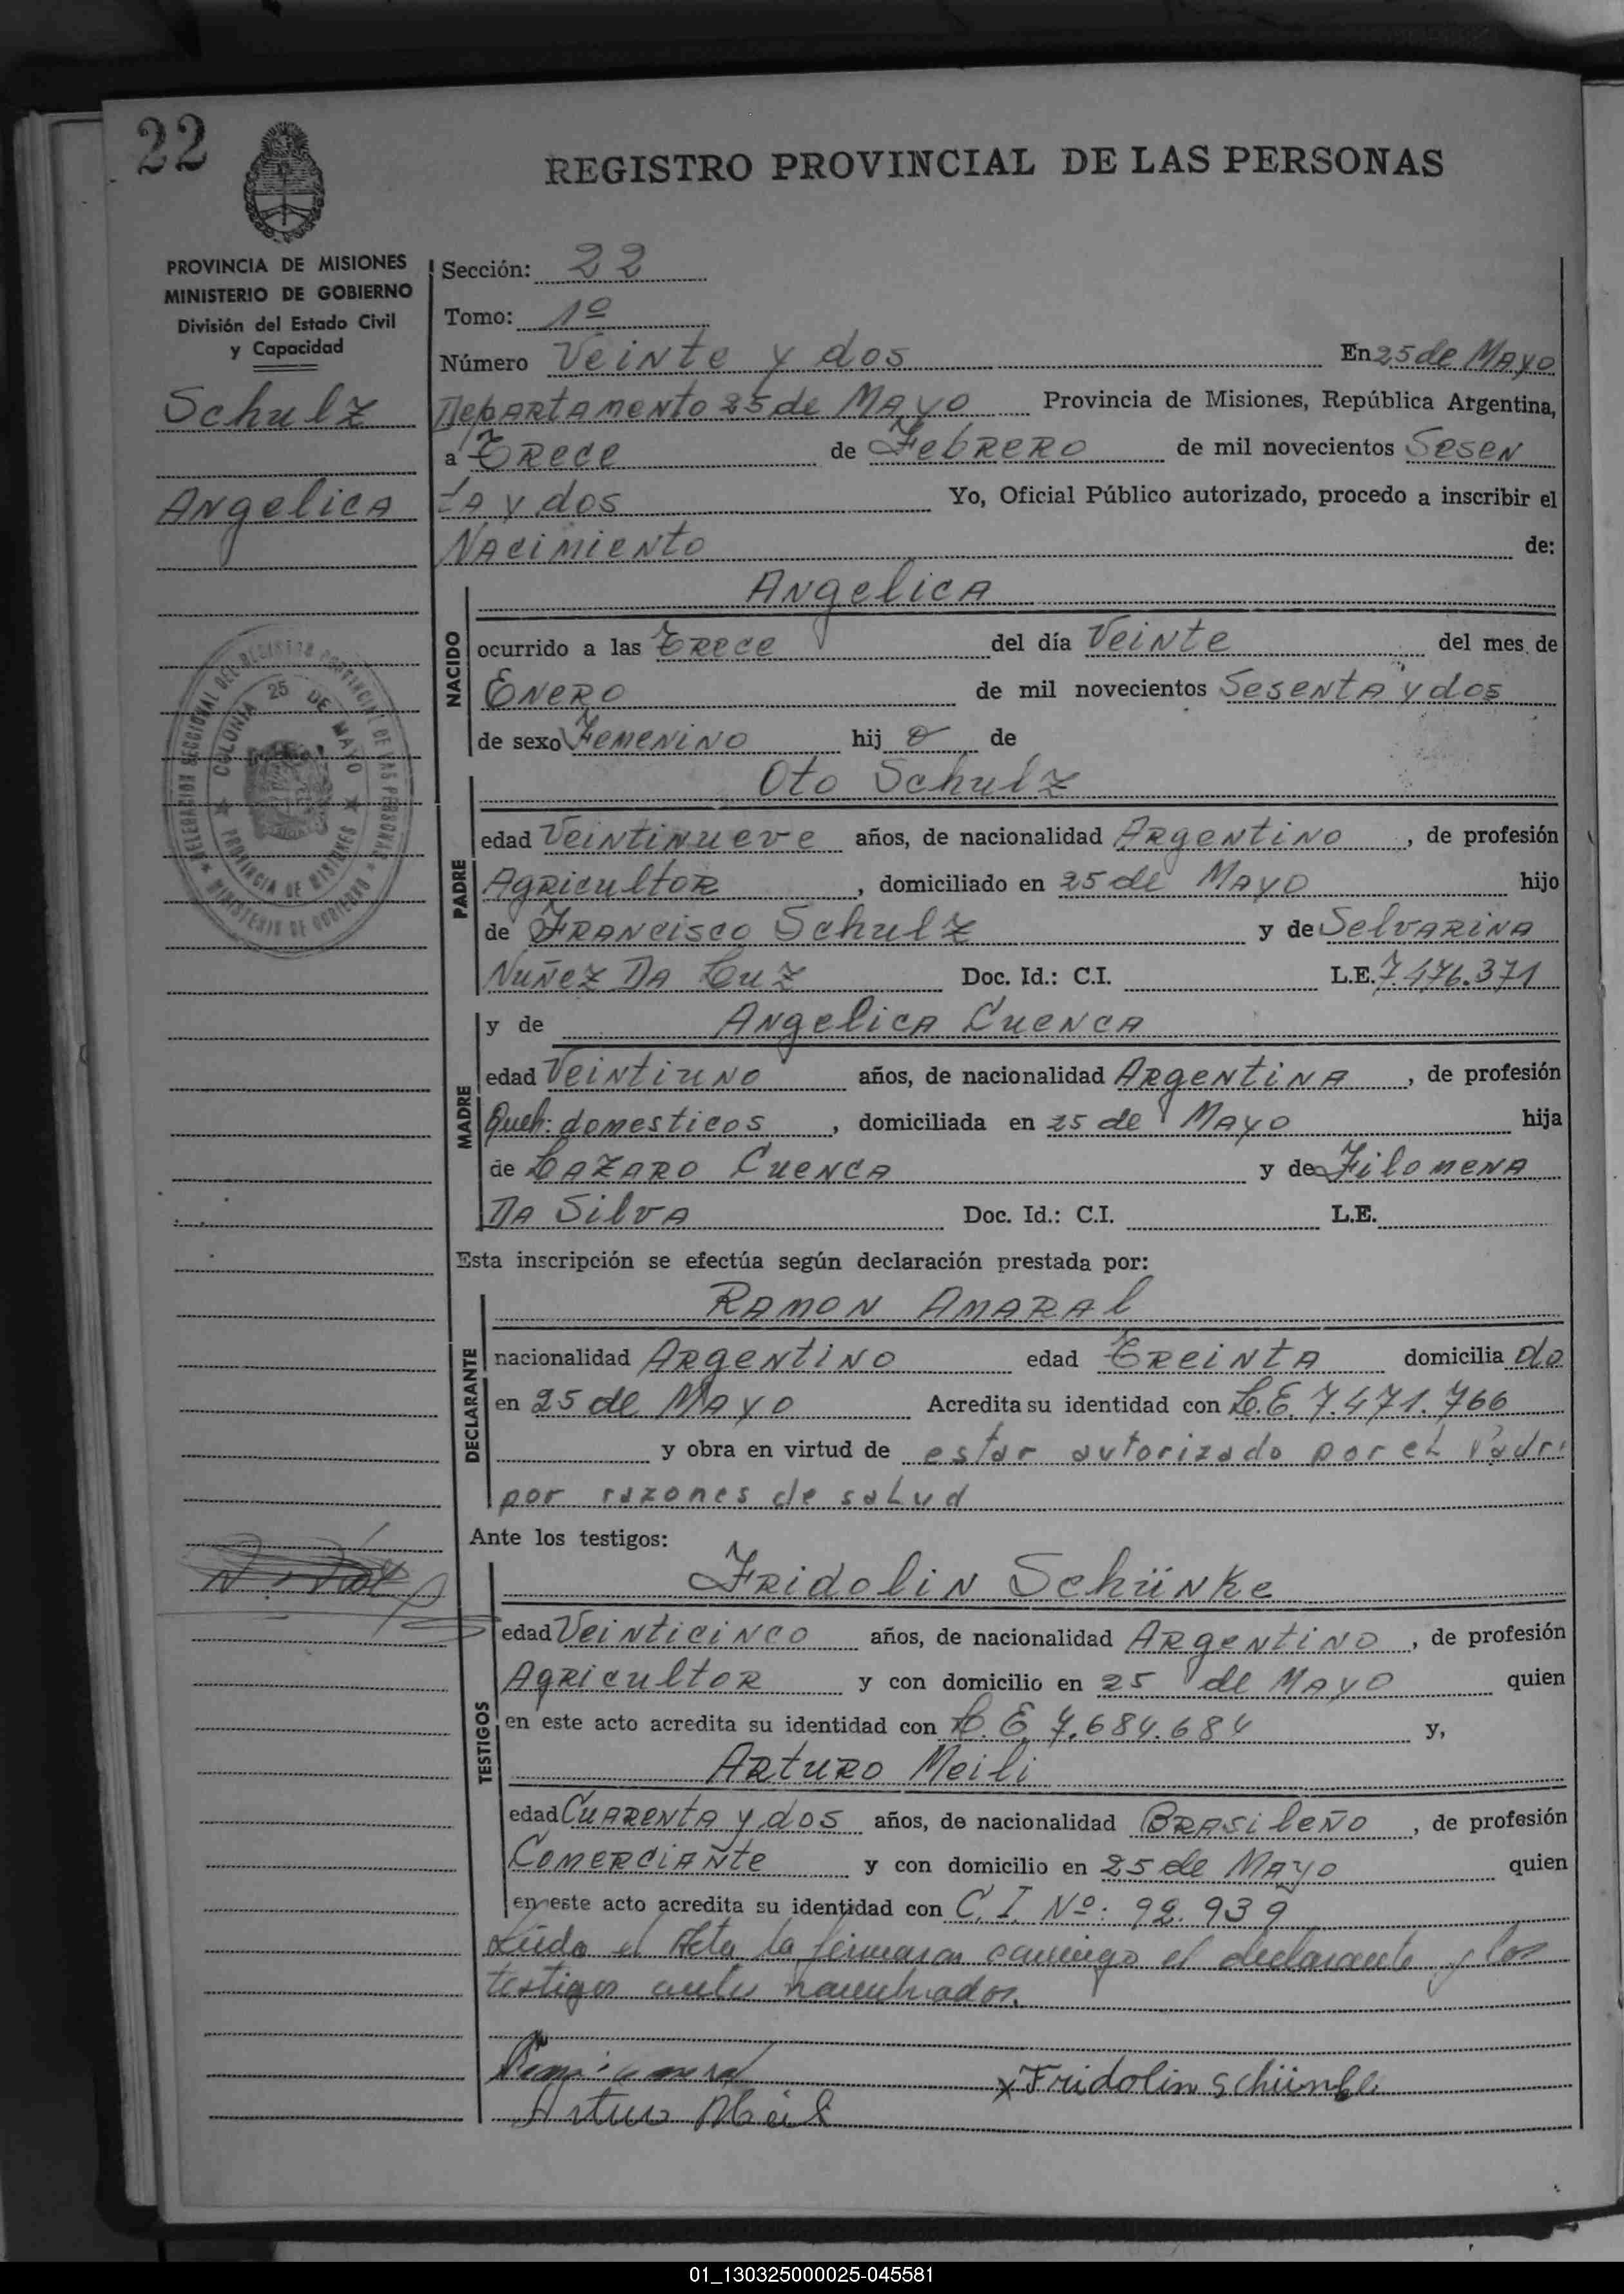 22
REGISTRO PROVINCIAL DE LAS PERSONAS
PROVINCIA DE MISIONES
MINISTERIO DE GOBIERNO
División del Estado Civil
y Capacidad
Schulz
Angelica
DELEGACION SECCIONAL DEL REGISTRO PROVINCIAL DE LAS PERSONAS
MINISTERIO DE GOBIERNO
COLONIA 25 DE MAYO
PROVINCIA DE MISIONES
Sección: 22
Tomo: 1º
Número Veinte y dos En 25 de Mayo
Departamento 25 de Mayo Provincia de Misiones, República Argentina,
a Trece de Febrero de mil novecientos Sesen
ta y dos Yo, Oficial Público autorizado, procedo a inscribir el
Nacimiento de:
NACIDO
Angelica
ocurrido a las Trece del día Veinte del mes de
Enero de mil novecientos Sesenta y dos
de sexo Femenino hij de
PADRE
Oto Schulz
edad Veintinueve años, de nacionalidad Argentino, de profesión
Agricultor, domiciliado en 25 de Mayo hijo
de Francisco Schulz y de Selvarina
Nuñez Da Luz Doc. Id.: C.I. L.E. 7.476.371
MADRE
y de Angelica Cuenca
edad Veintiuno años, de nacionalidad Argentina, de profesión
Queh: domesticos, domiciliada en 25 de Mayo hija
de Lazaro Cuenca y de Filomena
Da Silva Doc. Id.: C.I. L.E.
Esta inscripción se efectúa según declaración prestada por:
DECLARANTE
Ramon Amaral
nacionalidad Argentino edad Treinta domicilia do
en 25 de Mayo Acredita su identidad con L.E. 7.471.766
y obra en virtud de estar autorizado por el Padre
por razones de salud
Ante los testigos:
TESTIGOS
Fridolin Schünke
edad Veinticinco años, de nacionalidad Argentino, de profesión
Agricultor y con domicilio en 25 de Mayo quien
en este acto acredita su identidad con L.E. 7.684.684 y,
Arturo Meili
edad Cuarenta y dos años, de nacionalidad Brasileño, de profesión
Comerciañte y con domicilio en 25 de Mayo quien
en este acto acredita su identidad con C.I. Nº: 92.939
Leida el Acta la firmaron conmigo el declarante y los
testigos antes nombrados.
x Fridolin Schünke
Arturo Meili
01_130325000025-045581